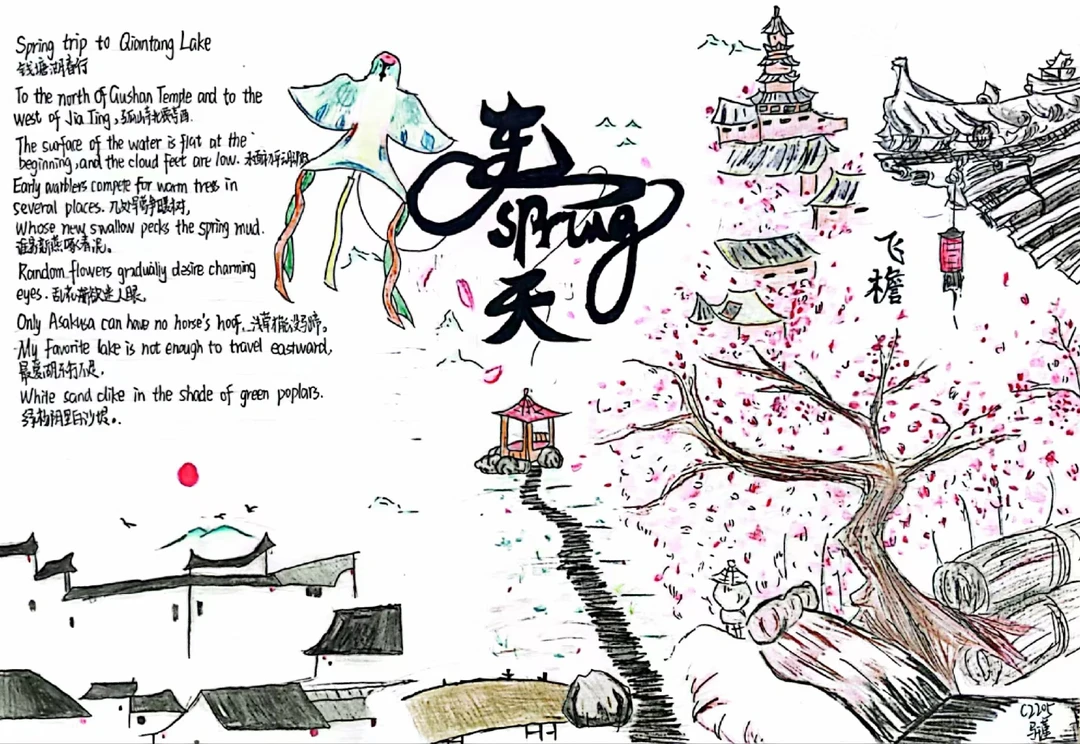 Spring trip to Qiantang Lake
钱塘湖春行
To the north Of Gushan Temple and to the
west of Jia Ting, 孤山寺北贾亭西.
The surface of the water is flat at the
beginning, and the cloud feet are low. 水面初平云脚低
Early warblers compete for warm tress in
several places. 几处早莺争暖树,
Whose new swallow pecks the spring mud.
谁家新燕啄春泥。
Random flowers gradually desire charming
eyes. 乱花渐欲迷人眼,
Only Asakusa can have no horse's hoof, 浅草才能没马蹄。
My favorite lake is not enough to travel eastward,
最爱湖东行不足,
White sand alike in the shade of green poplars.
绿杨阴里白沙堤。
春
spring
天
飞
檐
C2205